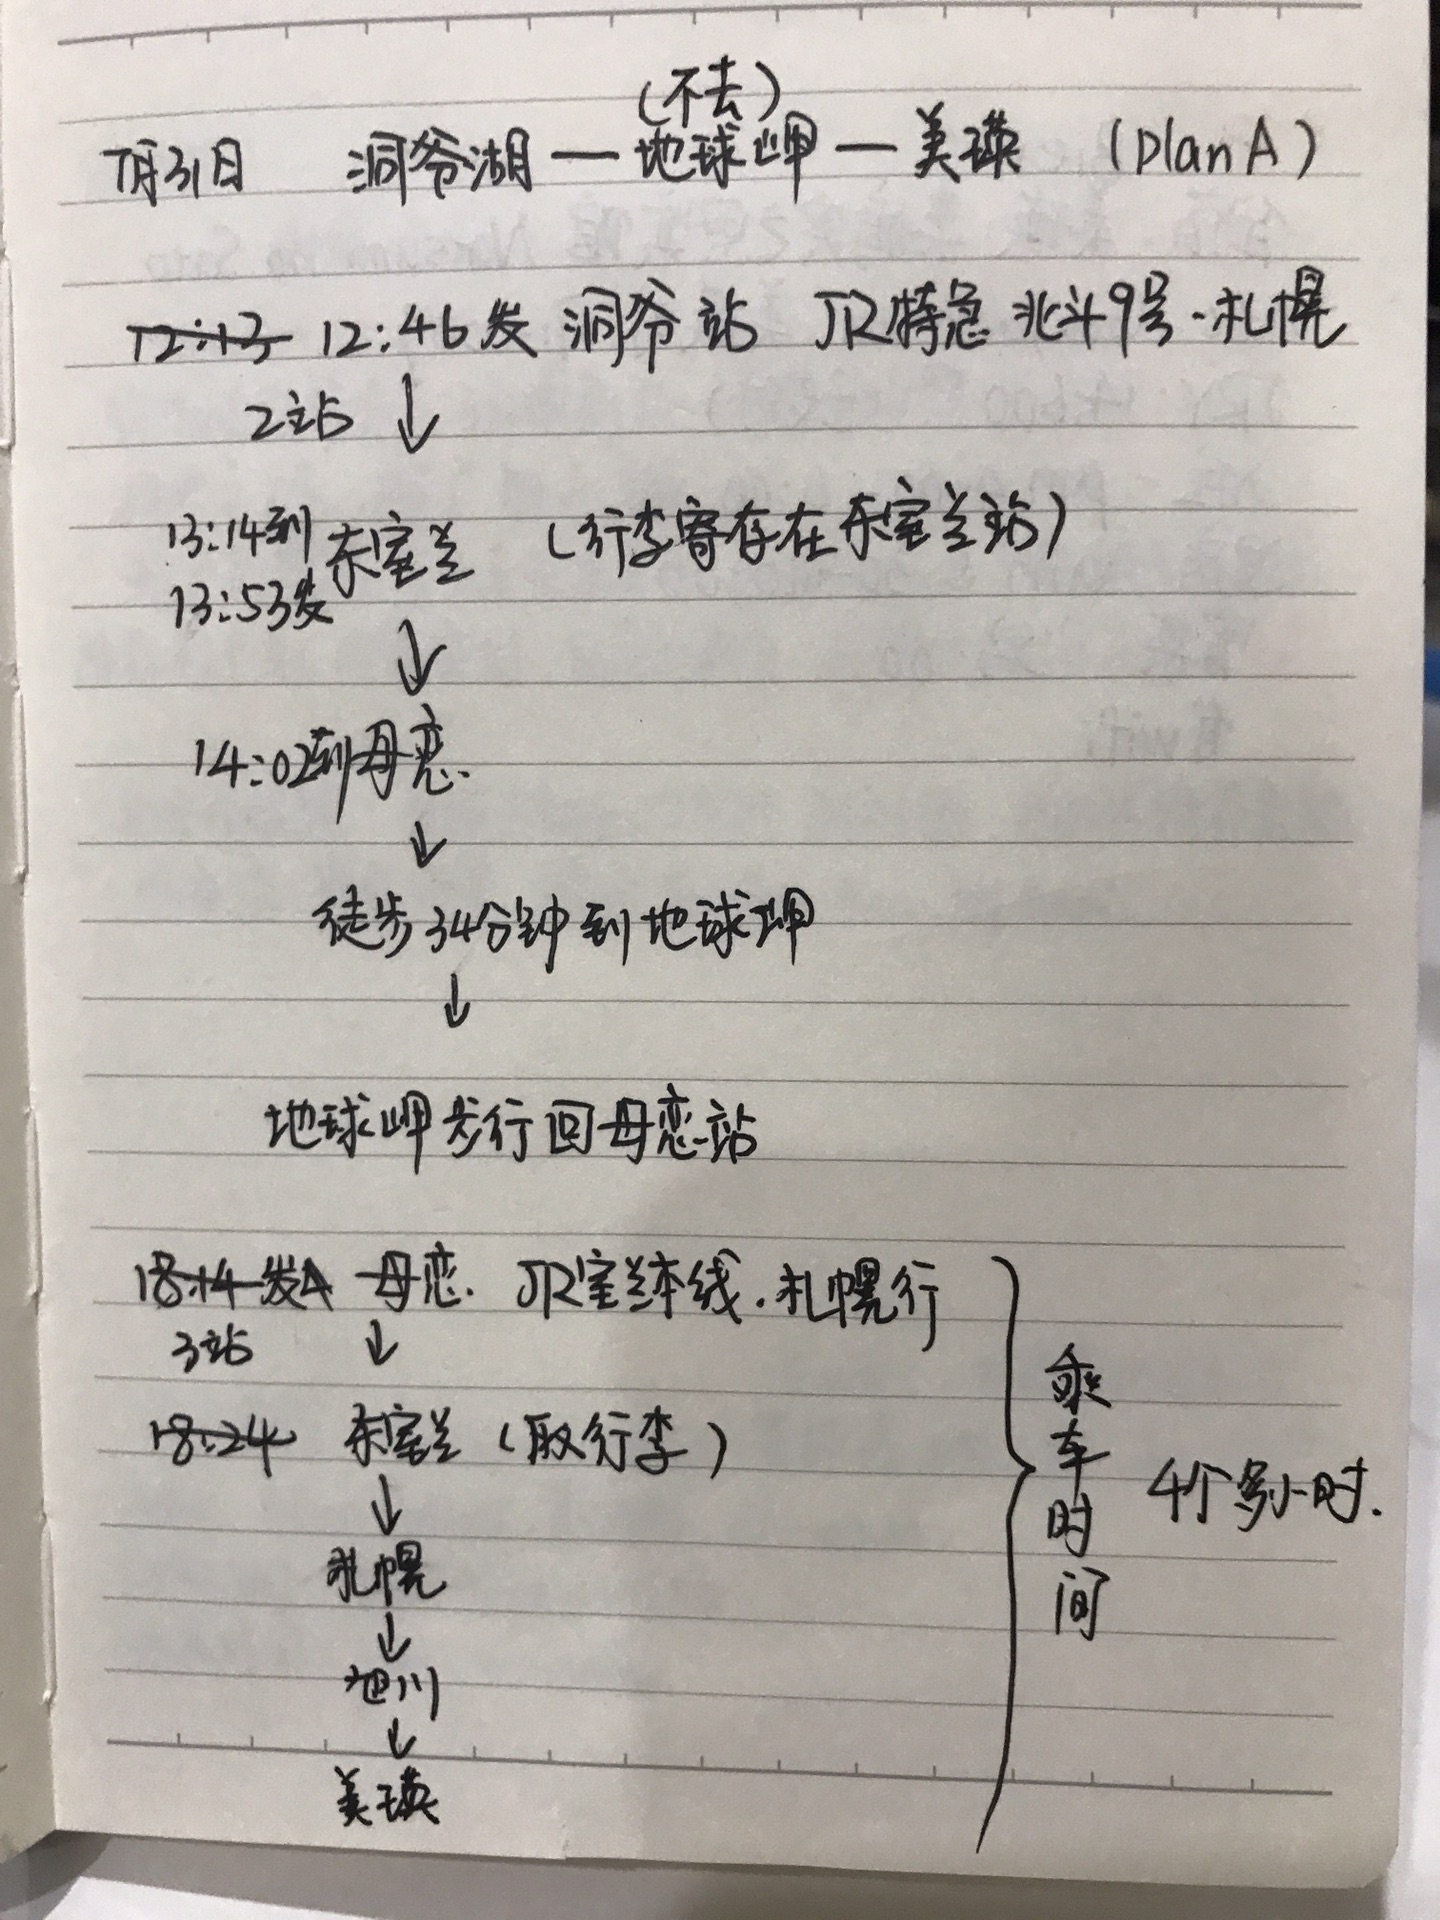 (不去)
7月31日 洞爷湖—地球岬—美瑛 (planA)
12:13 12:46发 洞爷站 JR特急 北斗9号·札幌
2站 ↓
13:14到 东室兰 (行李寄存在东室兰站)
13:53发
↓
14:02到母恋.
↓
徒步34分钟到地球岬
↓
地球岬步行回母恋站
18:14发 母恋. JR室兰本线.札幌行
3站 ↓
18:24 东室兰 (取行李)
↓
札幌
↓
旭川
↓
美瑛
乘车时间 4个多小时.